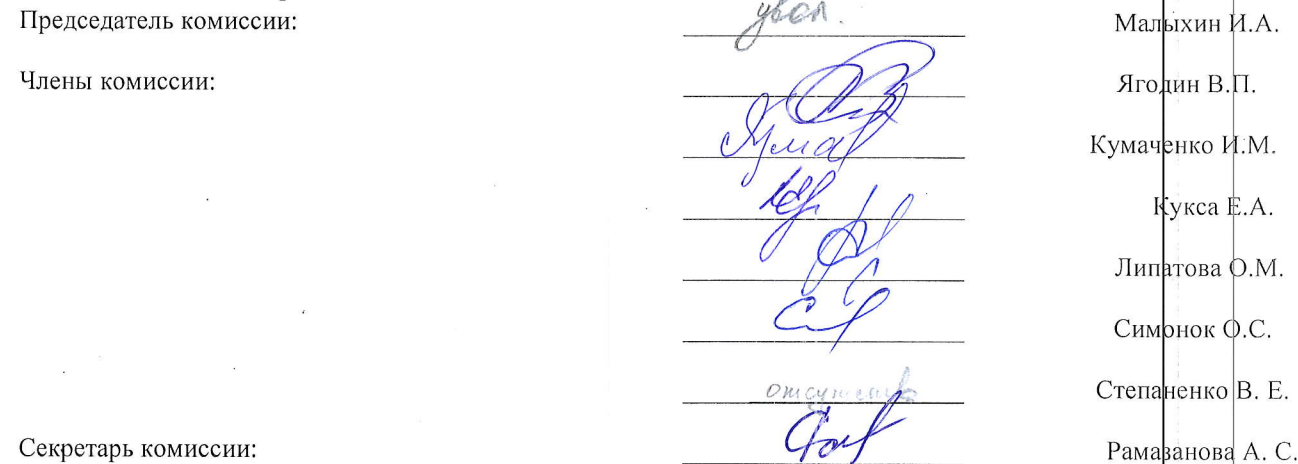 Председатель комиссии: увол. Малыхин И.А.
Члены комиссии: Ягодин В.П.
Кумаченко И.М.
Кукса Е.А.
Липатова О.М.
Симонок О.С.
Степаненко В. Е.
Секретарь комиссии: Рамазанова А. С.